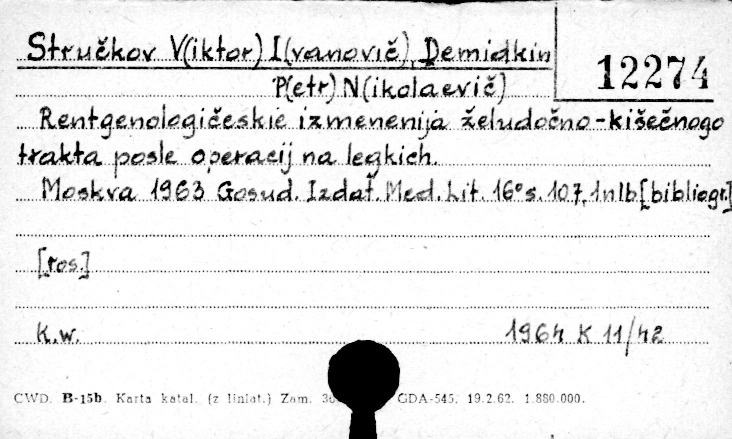 Stručkov V(iktor) I(vanovič), Demidkin
P(etr) N(ikolaevič)
12274
Rentgenologičeskie izmenenija želudočno-kišečnogo
trakta posle operacij na legkich.
Moskva 1963 Gosud. Izdat. Med. Lit. 16° s. 107, 1nlb [bibliogr.]
[ros.]
K.w. 1964 K 11/42
CWD. B-15b. Karta katal. (z liniat.) Zam. GDA-545. 19.2.62. 1.880.000.